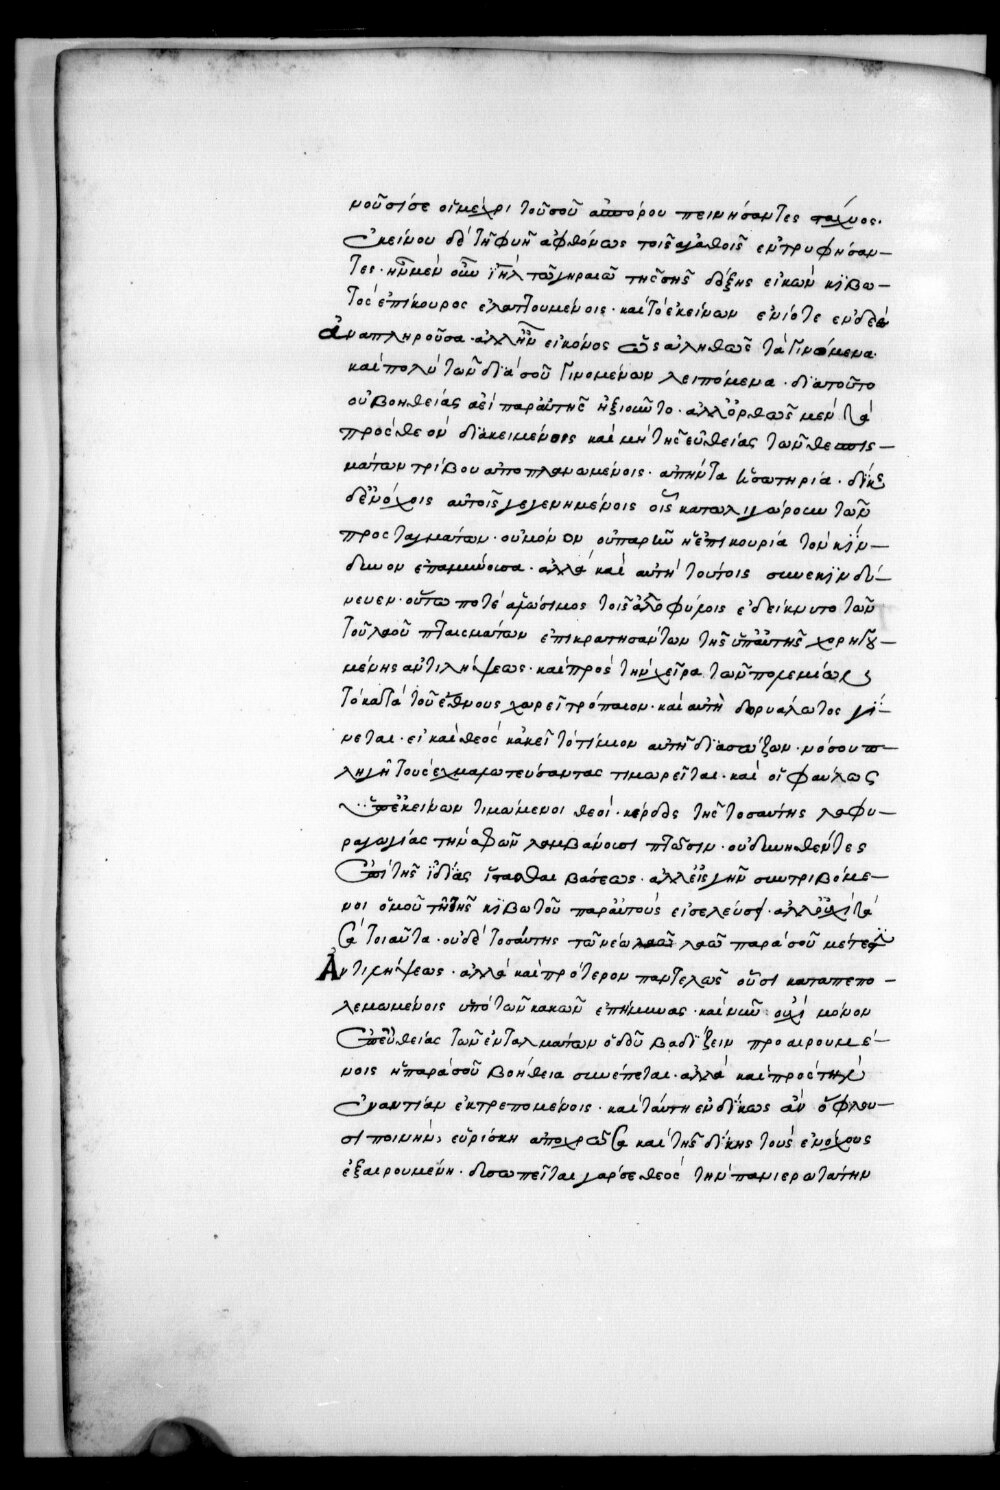 νοῦσί σε οἱ μέχρι τοῦ σοῦ ἀπόρου πεινήσαντες τόκος.
ἐκείνου δὲ τῆ φυῆ ἀφθόνως τοῖς ἀγαθοῖς ἐντρυφήσαν-
τες· ἦν μὲν οὖν τῶ Ἰηλ τῶ γηραιῶ τῆς σῆς δόξης εἰκὼν κιβω-
τὸς ἐπίκουρος ἐλαττουμένοις· καὶ τὸ ἐκείνων ἐνίοτε ἐνδεὲς
ἀναπληροῦσα· ἀλλ' ἦν εἰκόνος ὡς ἀληθῶς τὰ γινόμενα
καὶ πολὺ τῶν διὰ σοῦ γινομένων λειπόμενα· διατοῦτο
οὐ βοηθείας ἀεὶ παρ' αὐτῆς ἠξιοῦντο· ἀλλ' ὀρθῶς μὲν τὰ
πρὸς θεὸν διακειμένοις καὶ μὴ τῆς εὐθείας τῶν θεσπις-
μάτων τρίβου ἀποπλανωμένοις· ἀπήντα ἡ σωτηρία· δίκης
δ' ἐνόχοις αὐτοῖς γεγενημένοις οἷς κατωλιγώρουν τῶν
προςταγμάτων· οὐ μόνον οὐ παρῆν ἡ ἐπικουρία τὸν κίν-
δυνον ἐπαμύνουσα· ἀλλὰ καὶ αὐτὴ τούτοις συνεκινδύ-
νευεν· οὕτω ποτὲ ἁλώσιμος τοῖς ἀλλοφύλοις ἐδείκνυτο τῶν
τοῦ λαοῦ πταισμάτων ἐπικρατησάντων τῆς ὑπ' αὐτῆς χορηγου-
μένης ἀντιλήψεως· καὶ πρὸς τὴν χεῖρα τῶν πολεμίων
τὸ κατὰ τοῦ ἔθνους χωρεῖ τρόπαιον· καὶ αὐτὴ δορυάλωτος γί-
νεται· εἰ καὶ θεὸς κἀκεῖ τὸ τίμιον αὐτῆ διασώζων· νόσου
πληγῆ τοὺς αἰχμαλωτεύσαντας τιμωρεῖται· καὶ οἱ φαύλως
ὑπ' ἐκείνων τιμώμενοι θεοί· κέρδος τῆς τοσαύτης λαφυ-
ραγωγίας τὴν ἀφ' ὧν λαμβάνουσι πτῶσιν· οὐ δυνηθέντες
ἐπὶ τῆς ἰδίας ἵστασθαι βάσεως· ἀλλ' εἰς γῆν συντριβόμε-
νοι ὁμοῦ τῆ τῆς κιβωτοῦ παρ' αὐτοὺς εἰσελεύσει· ἀλλ' οὐχὶ τὰ
σὰ τοιαῦτα· οὐδὲ τοσαύτης τῶ νέω λαῶ παρὰ σοῦ μέτεστιν
ἀντιλήψεως· ἀλλὰ καὶ πρότερον παντελῶς οὖσι καταπεπο-
λεμωμένοις ὑπὸ τῶν κακῶν ἐπήμυνας· καὶ νῦν οὐχὶ μόνον
ἐπ' εὐθείας τῶν ἐνταλμάτων ὁδοῦ βαδίζειν προαιρουμέ-
νοις ἡ παρὰ σοῦ βοήθεια συνέπεται· ἀλλὰ καὶ πρὸς τὴν
ἐναντίαν ἐκτρεπομένοις· καὶ ταύτη ἐνδίκως ἂν ὄφλου-
σι ποινὴν, εὑρίσκη ἀποχρῶσα καὶ τῆς δίκης τοὺς ἐνόχους
ἐξαιρουμένη· δυσωπεῖται γάρ σε θεὸς τὴν πανιερωτάτην